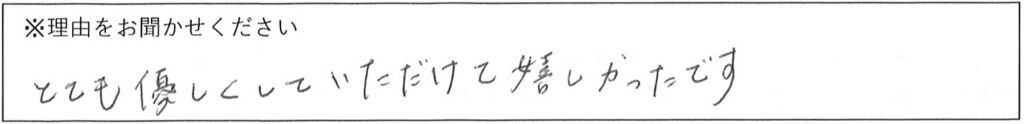 ※理由をお聞かせください
とても優しくしていただけて嬉しかったです